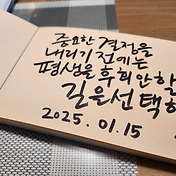 중요한 결정을
내리기 전에는
평생을 후회안할
길을선택하
2025.01.15